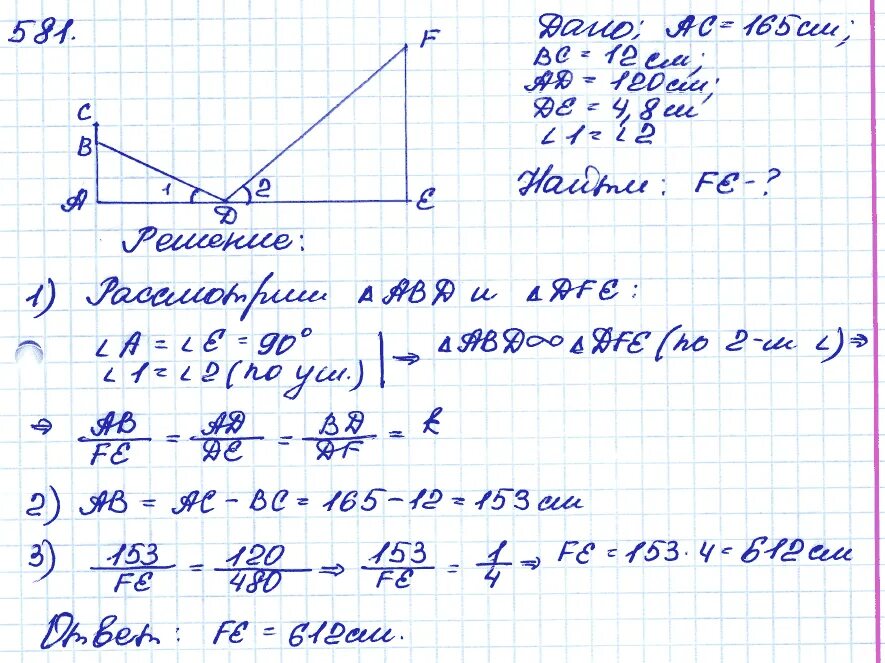 581.
F
C
B
1
2
A
D
E
Дано: AC = 165 см;
BC = 12 см;
AD = 120 см;
DE = 4,8 м
∠1 = ∠2
Найти: FE - ?
Решение:
1) Рассмотрим △ABD и △DFE:
∠A = ∠E = 90°
∠1 = ∠2 (по усл.) | ⇒ △ABD ∞ △DFE (по 2-м ∠) ⇒
⇒ AB/FE = AD/DE = BD/DF = k
2) AB = AC - BC = 165 - 12 = 153 см
3) 153/FE = 120/480 ⇒ 153/FE = 1/4 ⇒ FE = 153 · 4 = 612 см
Ответ: FE = 612 см.